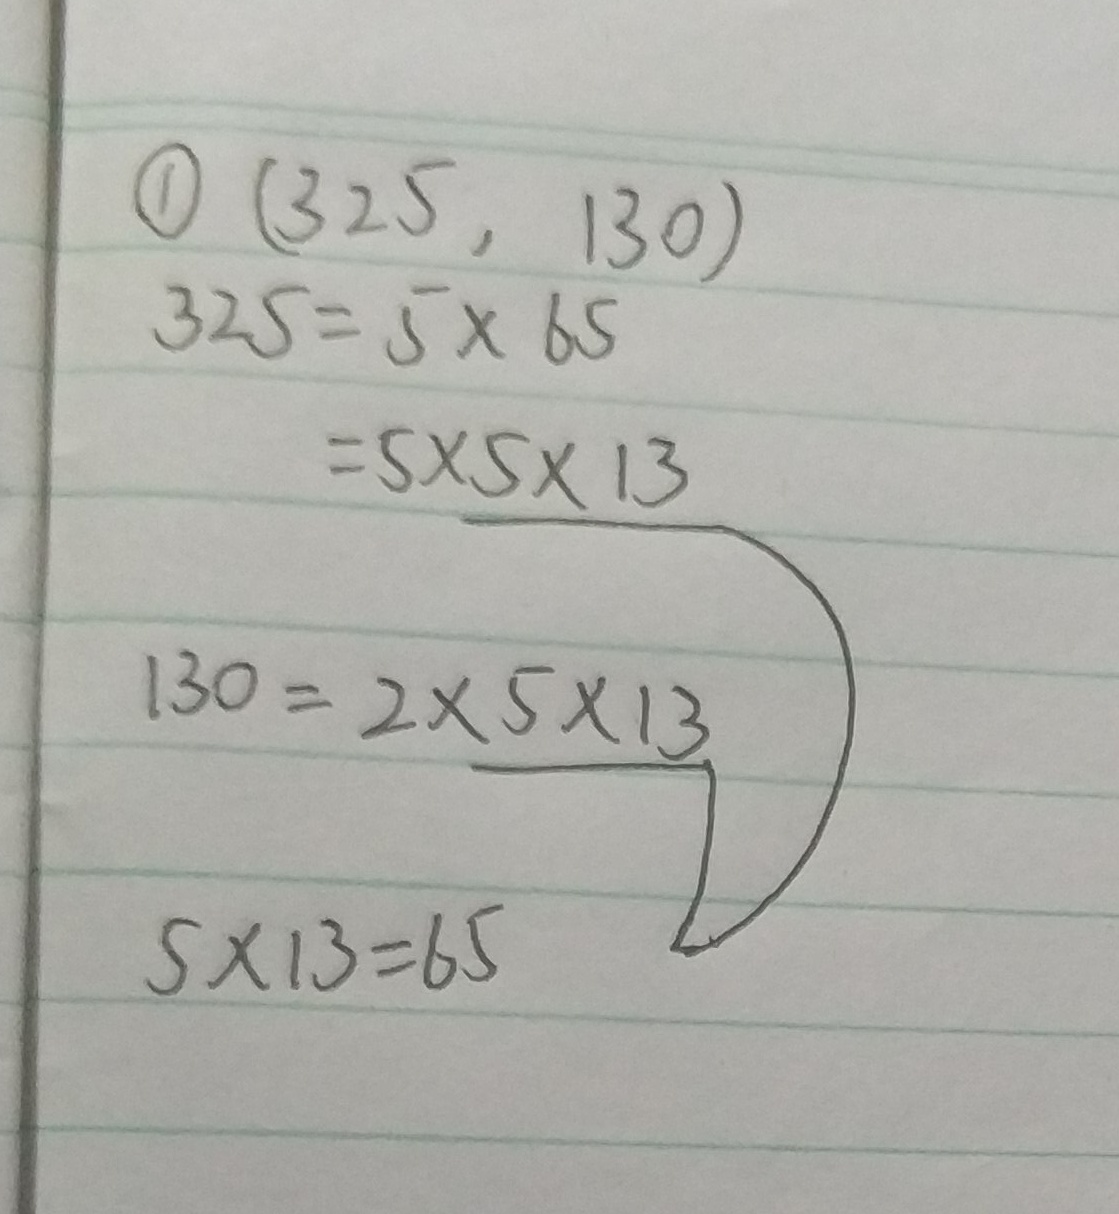 ① (325, 130)
325=5×65
=5×5×13
130=2×5×13
5×13=65